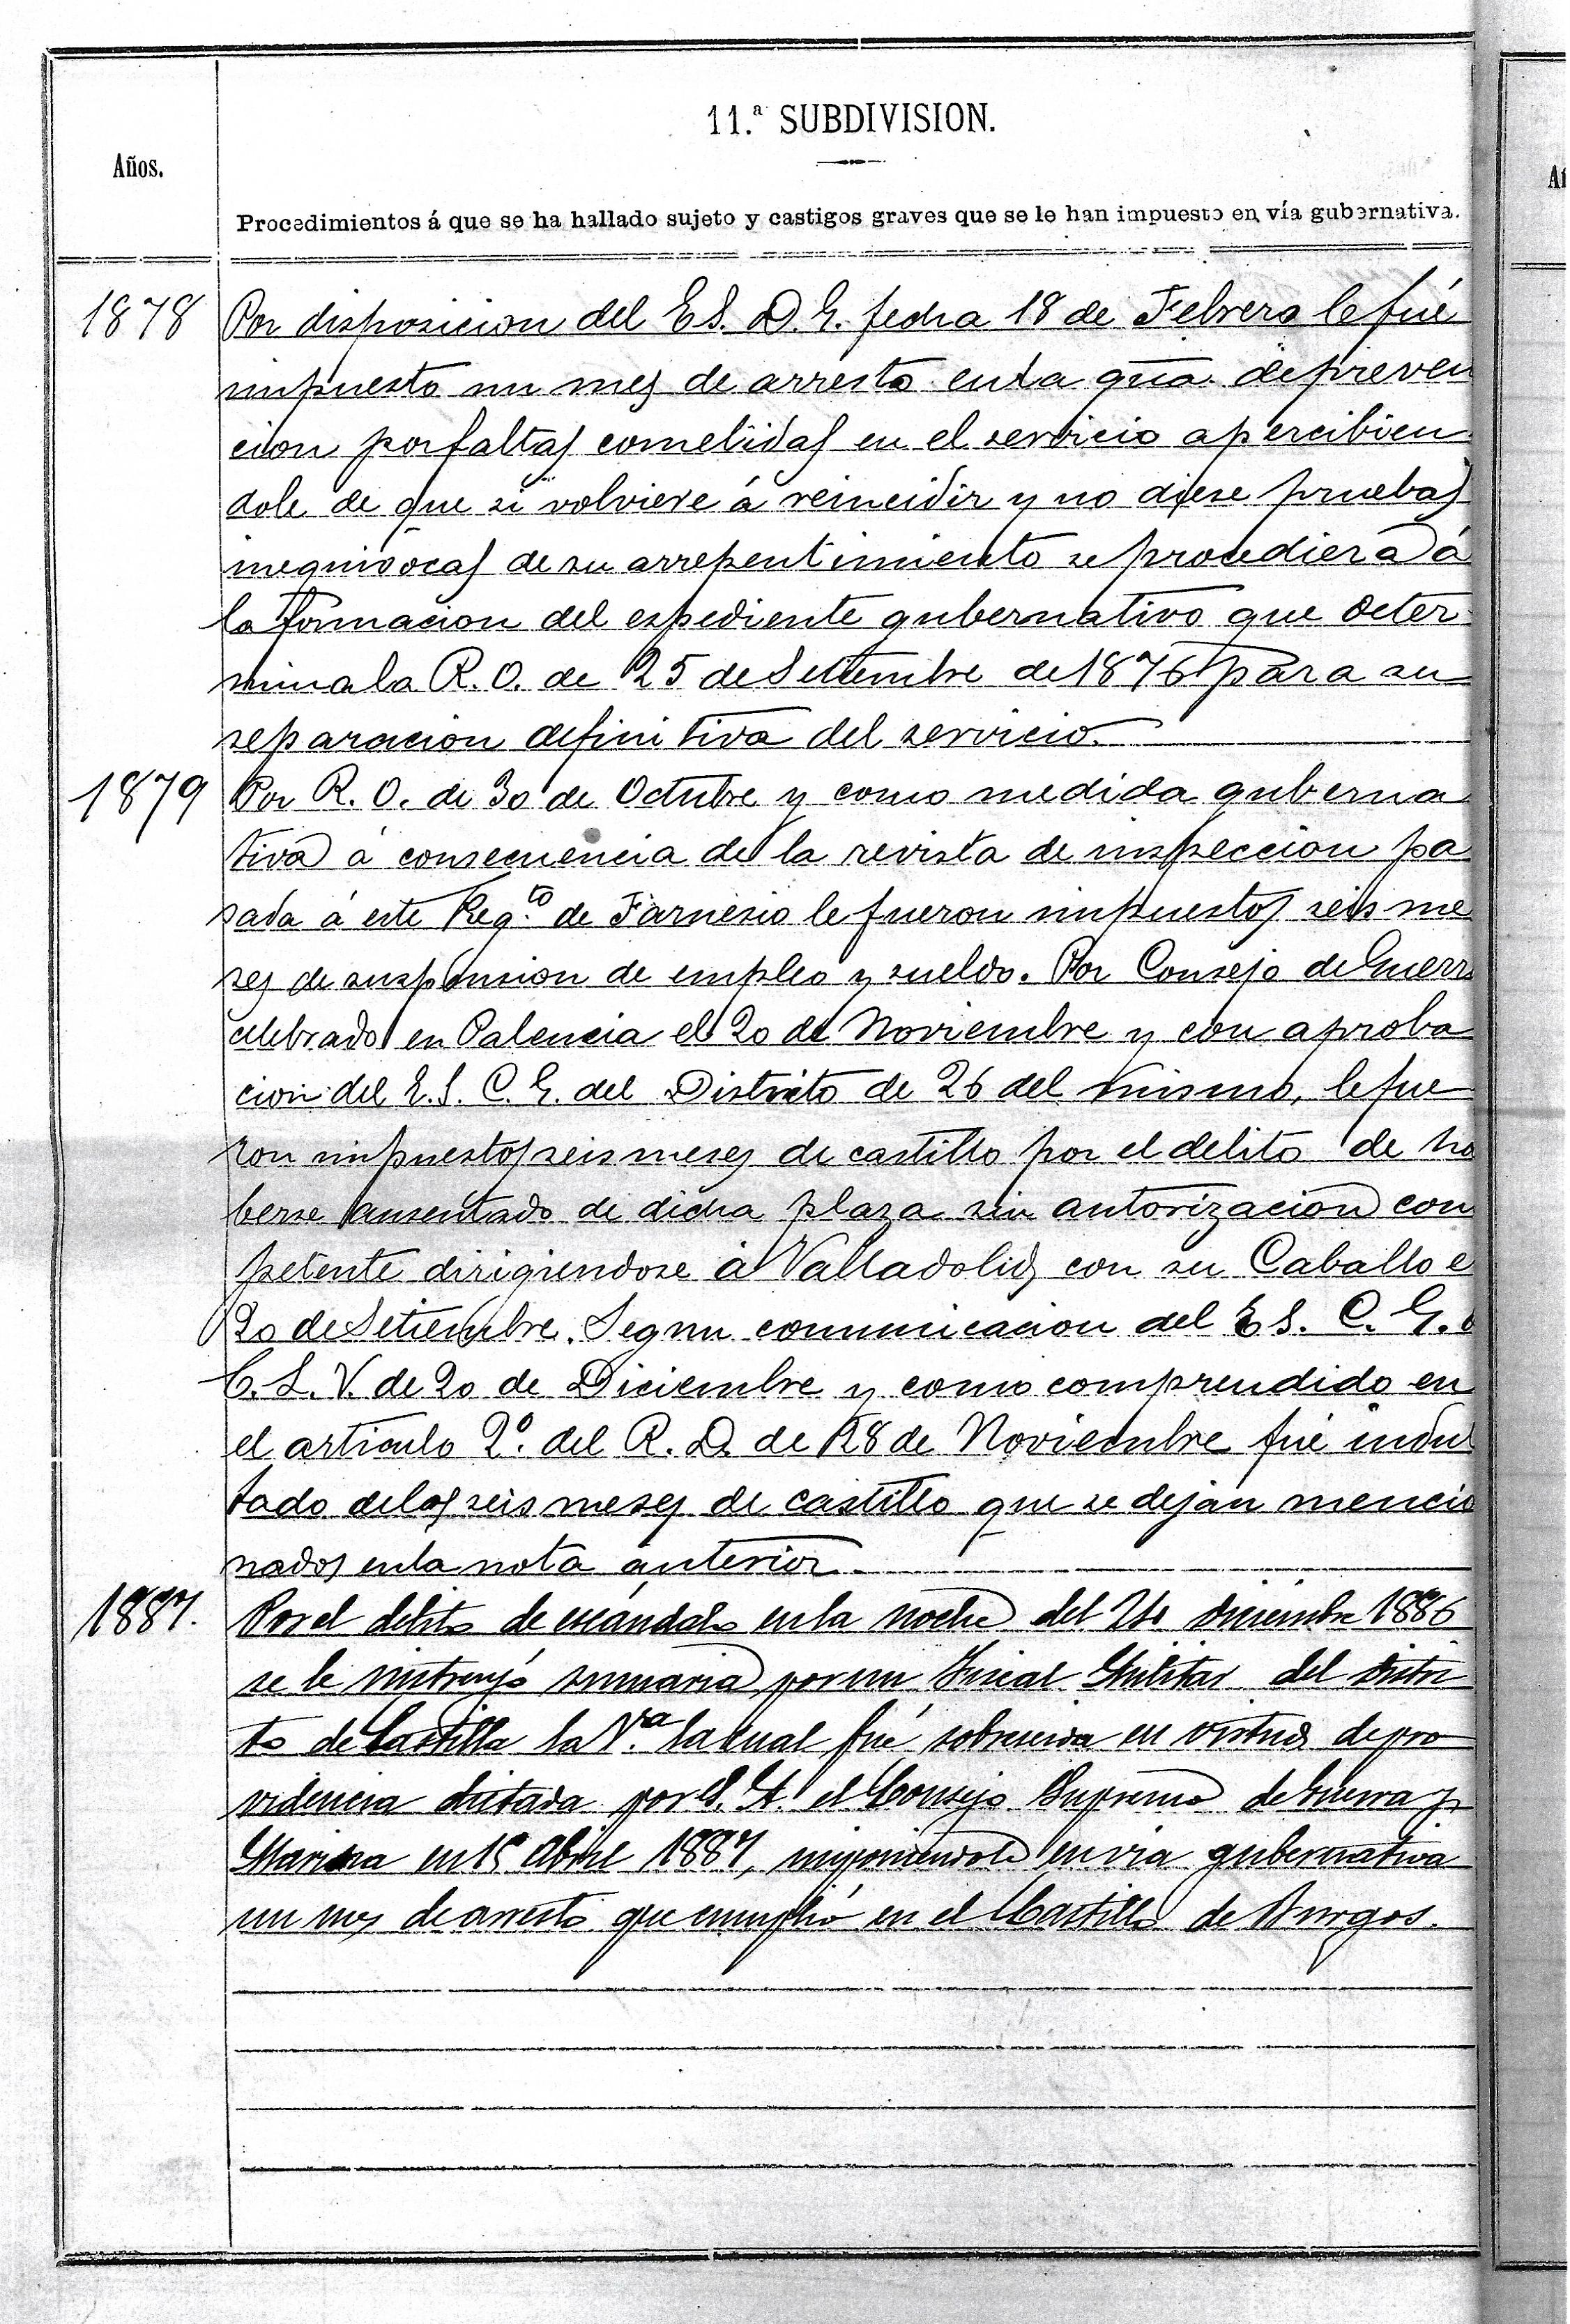 11.ª SUBDIVISION.
Años.
Procedimientos á que se ha hallado sujeto y castigos graves que se le han impuesto en vía gubernativa.
1878 Por disposicion del E S. D. G. fecha 18 de Febrero le fué
impuesto un mes de arresto en la gũa. de preven
cion por faltas cometidas en el servicio apercibien
dole de que si volviere á reincidir y no diese pruebas
inequivocas de su arrepentimiento se procediera á
la formacion del espediente gubernativo que deter
mina la R. O. de 25 de Setiembre de 1876 para su
separacion definitiva del servicio.
1879 Por R. O. de 30 de Octubre y como medida guberna
tiva á consecuencia de la revista de inspeccion pa
sada á este Reg.to de Farnesio le fueron impuestos seis me
ses de suspension de empleo y sueldo. Por Consejo de Guerra
celebrado en Palencia el 20 de Noviembre y con aproba
cion del E. S. C. G. del Distrito de 26 del mismo, le fue
ron impuestos seis meses de castillo por el delito de ha
berse ausentado de dicha plaza sin autorizacion com
petente dirigiendose á Valladolid con su Caballo e
20 de Setiembre. Segun comunicacion del E S. C. G. d
C. L. V. de 20 de Diciembre y como comprendido en
el articulo 2º. del R. D. de 28 de Noviembre fué indul
tado de los seis meses de castillo que se dejan mencio
nados en la nota anterior.
1887. Por el delito de escándalo en la noche del 24 diciembre 1886
se le instruyó sumaria por un Fiscal Militar del distri
to de Castilla la V.a la cual fué sobreseida en virtud de pro
videncia dictada por S. A. el Consejo Supremo de Guerra y
Marina en 15 Abril 1887, imponiendole en via gubernativa
un mes de arresto que cumplió en el Castillo de Burgos.